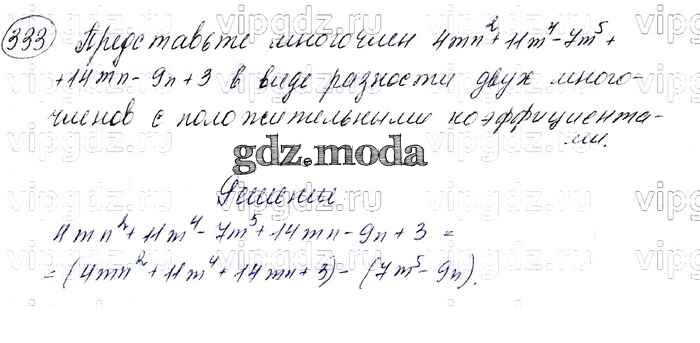 333 Представьте многочлен 4mn²+11m⁴-7m⁵+
+14mn-9n+3 в виде разности двух много-
членов с положительными коэффициента-
ми.
gdz.moda
Решение
4mn²+11m⁴-7m⁵+14mn-9n+3=
=(4mn²+11m⁴+14mn+3)-(7m⁵-9n).